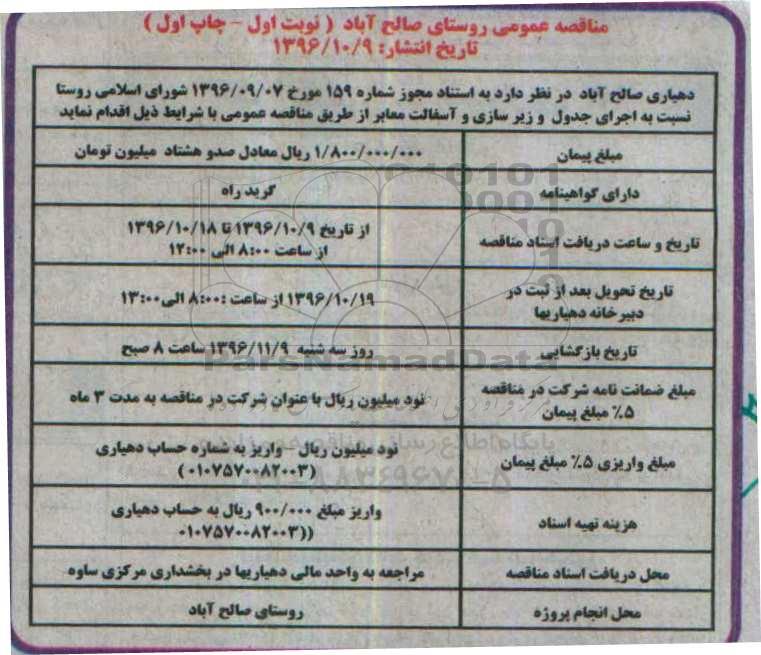 مناقصه عمومی روستای صالح آباد ( نوبت اول - چاپ اول )
تاریخ انتشار: ۱۳۹۶/۱۰/۹
دهیاری صالح آباد در نظر دارد به استناد مجوز شماره ۱۵۹ مورخ ۱۳۹۶/۰۹/۰۷ شورای اسلامی روستا
نسبت به اجرای جدول و زیر سازی و آسفالت معابر از طریق مناقصه عمومی با شرایط ذیل اقدام نماید
مبلغ پیمان
۱/۸۰۰/۰۰۰/۰۰۰ ریال معادل صدو هشتاد میلیون تومان
دارای گواهینامه
گرید راه
تاریخ و ساعت دریافت اسناد مناقصه
از تاریخ ۱۳۹۶/۱۰/۹ تا ۱۳۹۶/۱۰/۱۸
از ساعت ۸:۰۰ الی ۱۲:۰۰
تاریخ تحویل بعد از ثبت در
دبیرخانه دهیاریها
۱۳۹۶/۱۰/۱۹ از ساعت :۸:۰۰ الی ۱۳:۰۰
تاریخ بازگشایی
روز سه شنبه ۱۳۹۶/۱۱/۹ ساعت ۸ صبح
ParsNamadData
مبلغ ضمانت نامه شرکت در مناقصه
۵٪ مبلغ پیمان
نود میلیون ریال با عنوان شرکت در مناقصه به مدت ۳ ماه
مبلغ واریزی ۵٪ مبلغ پیمان
نود میلیون ریال - واریز به شماره حساب دهیاری
(۰۱۰۷۵۷۰۰۸۲۰۰۳)
هزینه تهیه اسناد
واریز مبلغ ۹۰۰/۰۰۰ ریال به حساب دهیاری
((۰۱۰۷۵۷۰۰۸۲۰۰۳
محل دریافت اسناد مناقصه
مراجعه به واحد مالی دهیاریها در بخشداری مرکزی ساوه
محل انجام پروژه
روستای صالح آباد